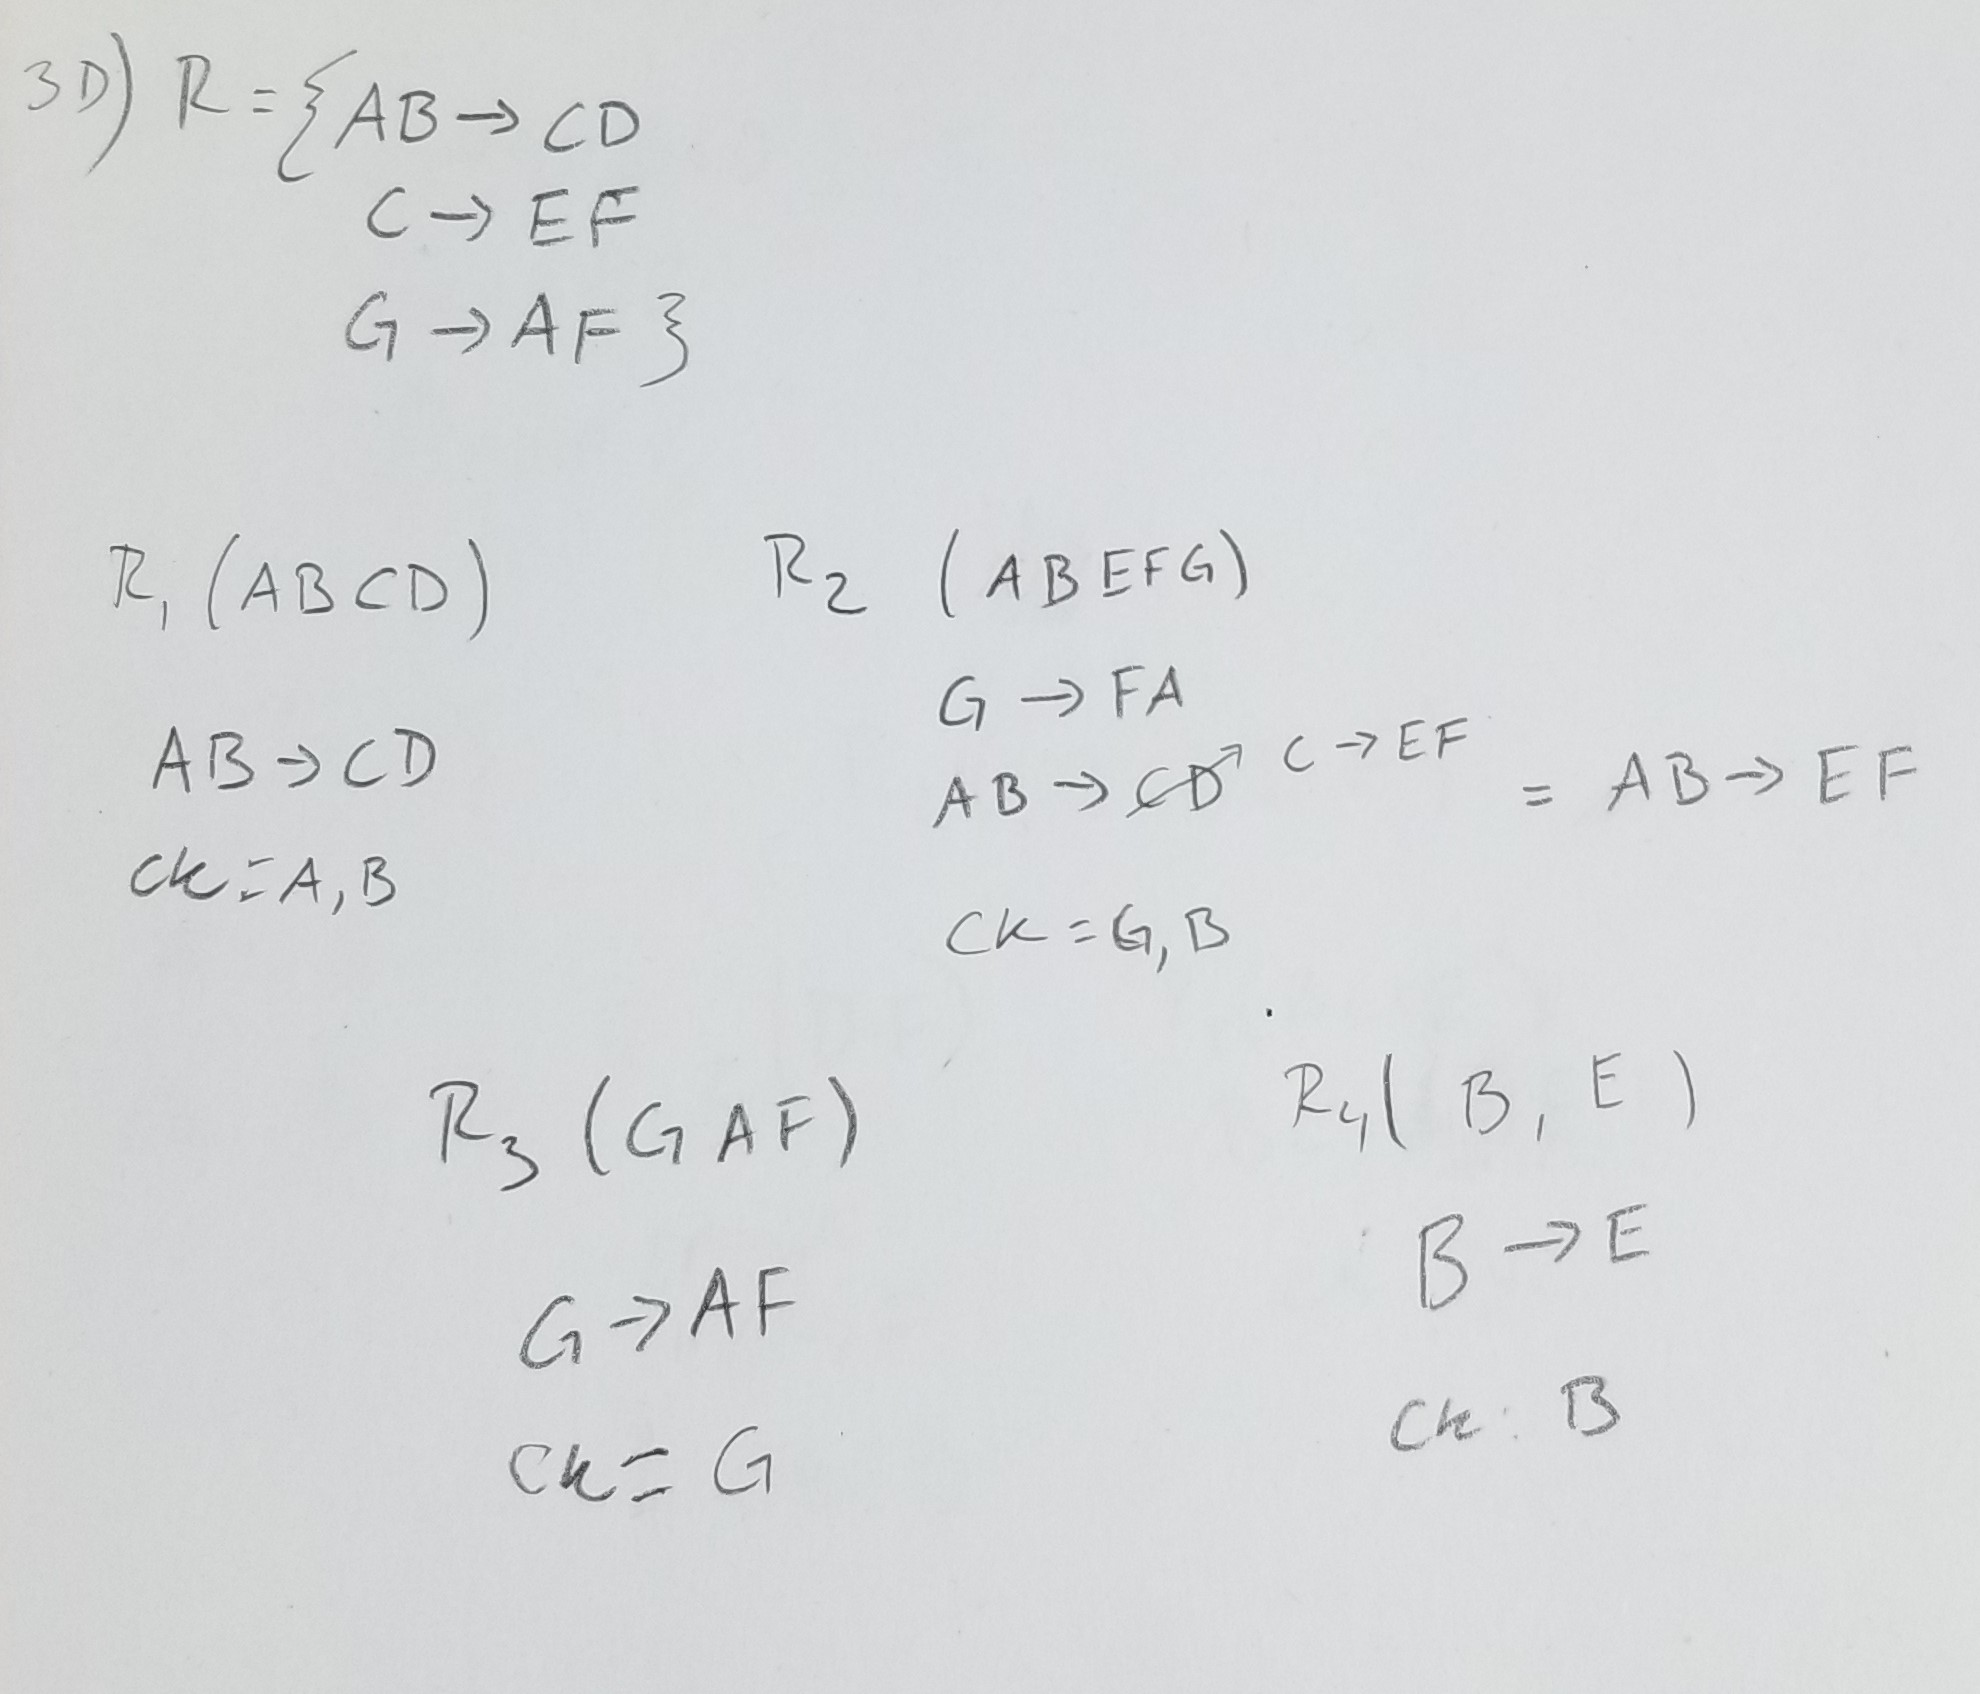 3D) R = {AB → CD
C → EF
G → AF }
R1 (ABCD)
AB → CD
CK = A, B
R2 (ABEFG)
G → FA
AB → CD C → EF = AB → EF
CK = G, B
R3 (GAF)
G → AF
CK = G
R4( B, E )
B → E
CK: B